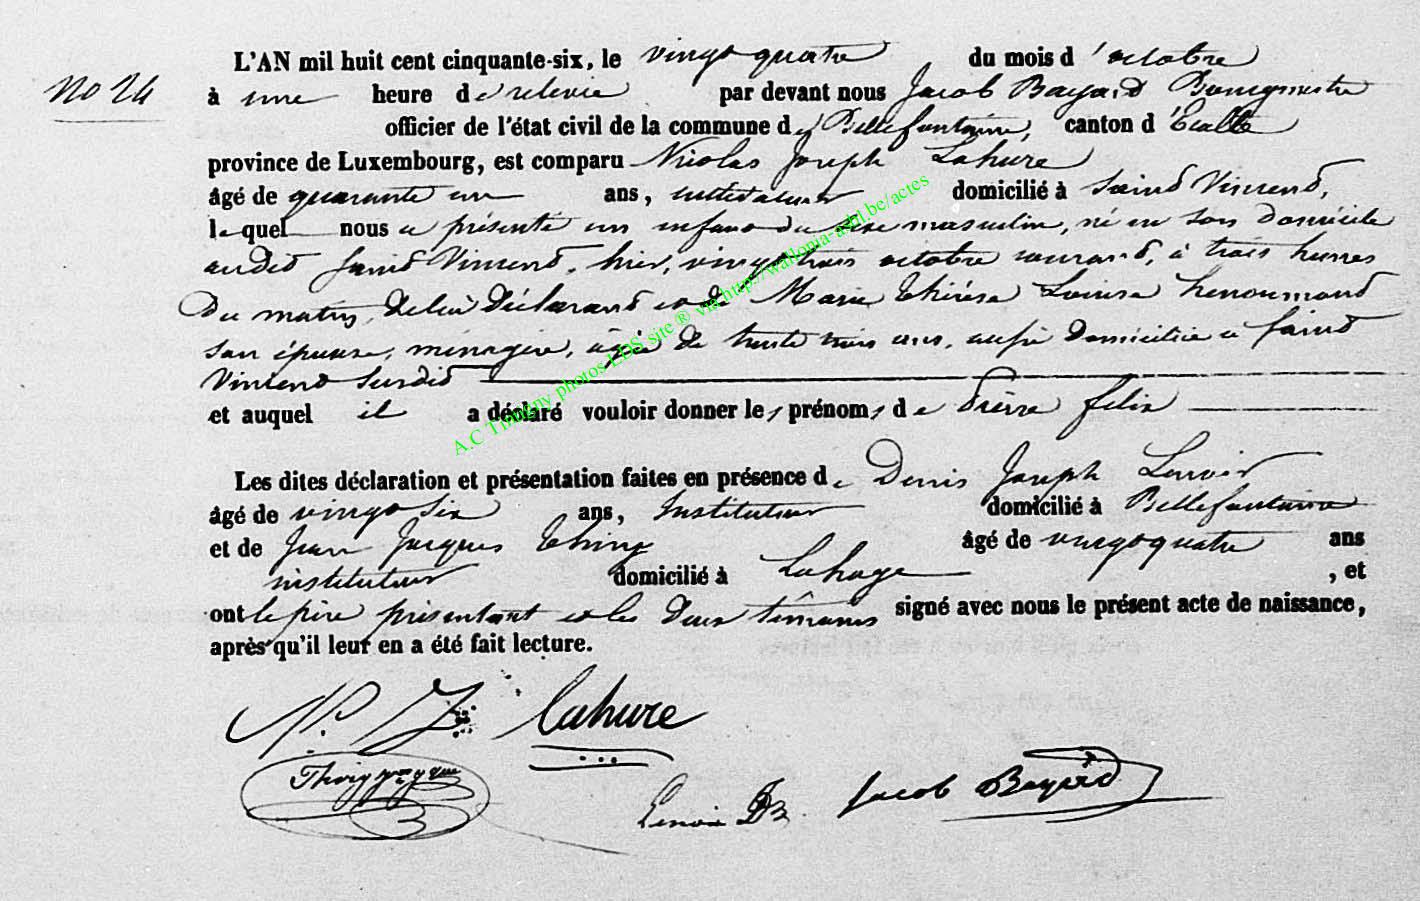 No 24
L'AN mil huit cent cinquante-six, le vingt quatre du mois d'octobre
à une heure de relevée par devant nous Jacob Bayard Bourgmestre
officier de l'état civil de la commune de Bellefontaine, canton d'Etalle
province de Luxembourg, est comparu Nicolas Joseph Lahure
âgé de quarante un ans, cultivateur domicilié à Saint Vincent,
lequel nous a présenté un enfant du sexe masculin, né en son domicile
audit Saint Vincent, hier, vingt trois octobre courant, à trois heures
du matin, de lui Déclarant et de Marie Thérèse Louise
son épouse, ménagère, âgée de trente trois ans, aussi domiciliée à Saint
Vincent surdit
et auquel il a déclaré vouloir donner les prénoms de Pierre felix
Les dites déclaration et présentation faites en présence de Denis Joseph Lenoir
âgé de vingt six ans, Instituteur domicilié à Bellefontaine
et de Jean Jacques Thiry âgé de vingt quatre ans
instituteur domicilié à Lahage, et
ont le père présentant et les deux témoins signé avec nous le présent acte de naissance,
après qu'il leur en a été fait lecture.
N. J. Lahure
Lenoir DJ. Jacob Bayard
A.C Tintigny photos LDS site ® via http://wallonia-asbl.be/actes